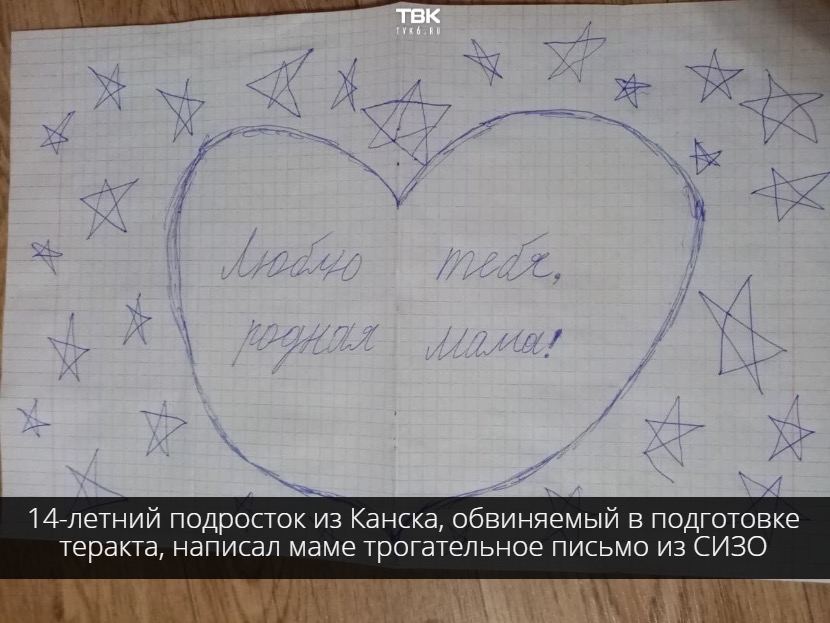 ТВК
TVK6.RU
Люблю тебя,
родная мама!
14-летний подросток из Канска, обвиняемый в подготовке
теракта, написал маме трогательное письмо из СИЗО